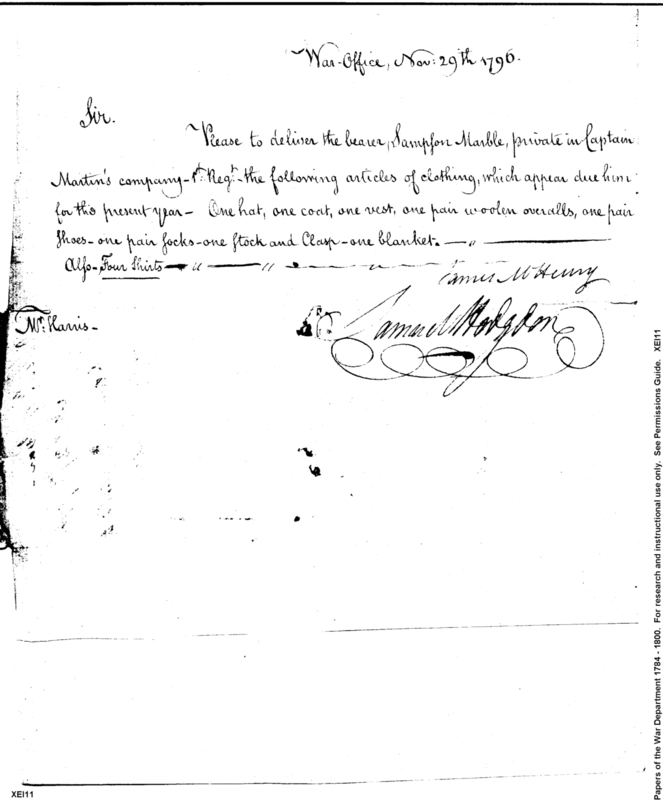 War-Office, Nov: 29th 1796.
Sir.
Please to deliver the bearer, Sampson Marble, private in Captain
Martin's company - 1st. Regt. - the following articles of clothing, which appear due him
for this present year - One hat, one coat, one vest, one pair woolen overalls, one pair
shoes - one pair socks - one stock and Clasp - one blanket. - " -
Also - Four Shirts - " - " - " -
James McHenry
Samuel Hodgdon
Mr. Harris -
Papers of the War Department 1784 - 1800. For research and instructional use only. See Permissions Guide. XEI11
XEI11